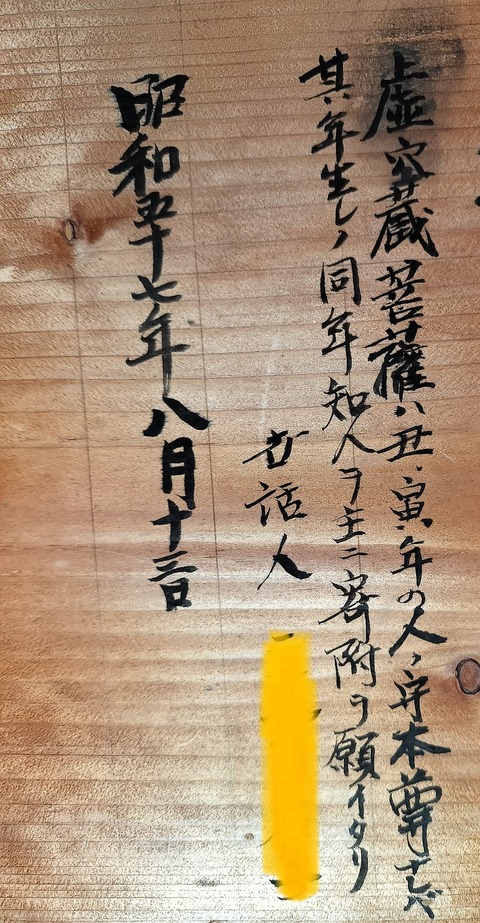 上虚空蔵菩薩ハ丑、寅、年の人ノ守本尊ナレバ
其年生レノ同年知人ヲ主ニ寄附ヲ願イタリ
世話人
昭和五十七年八月十三日